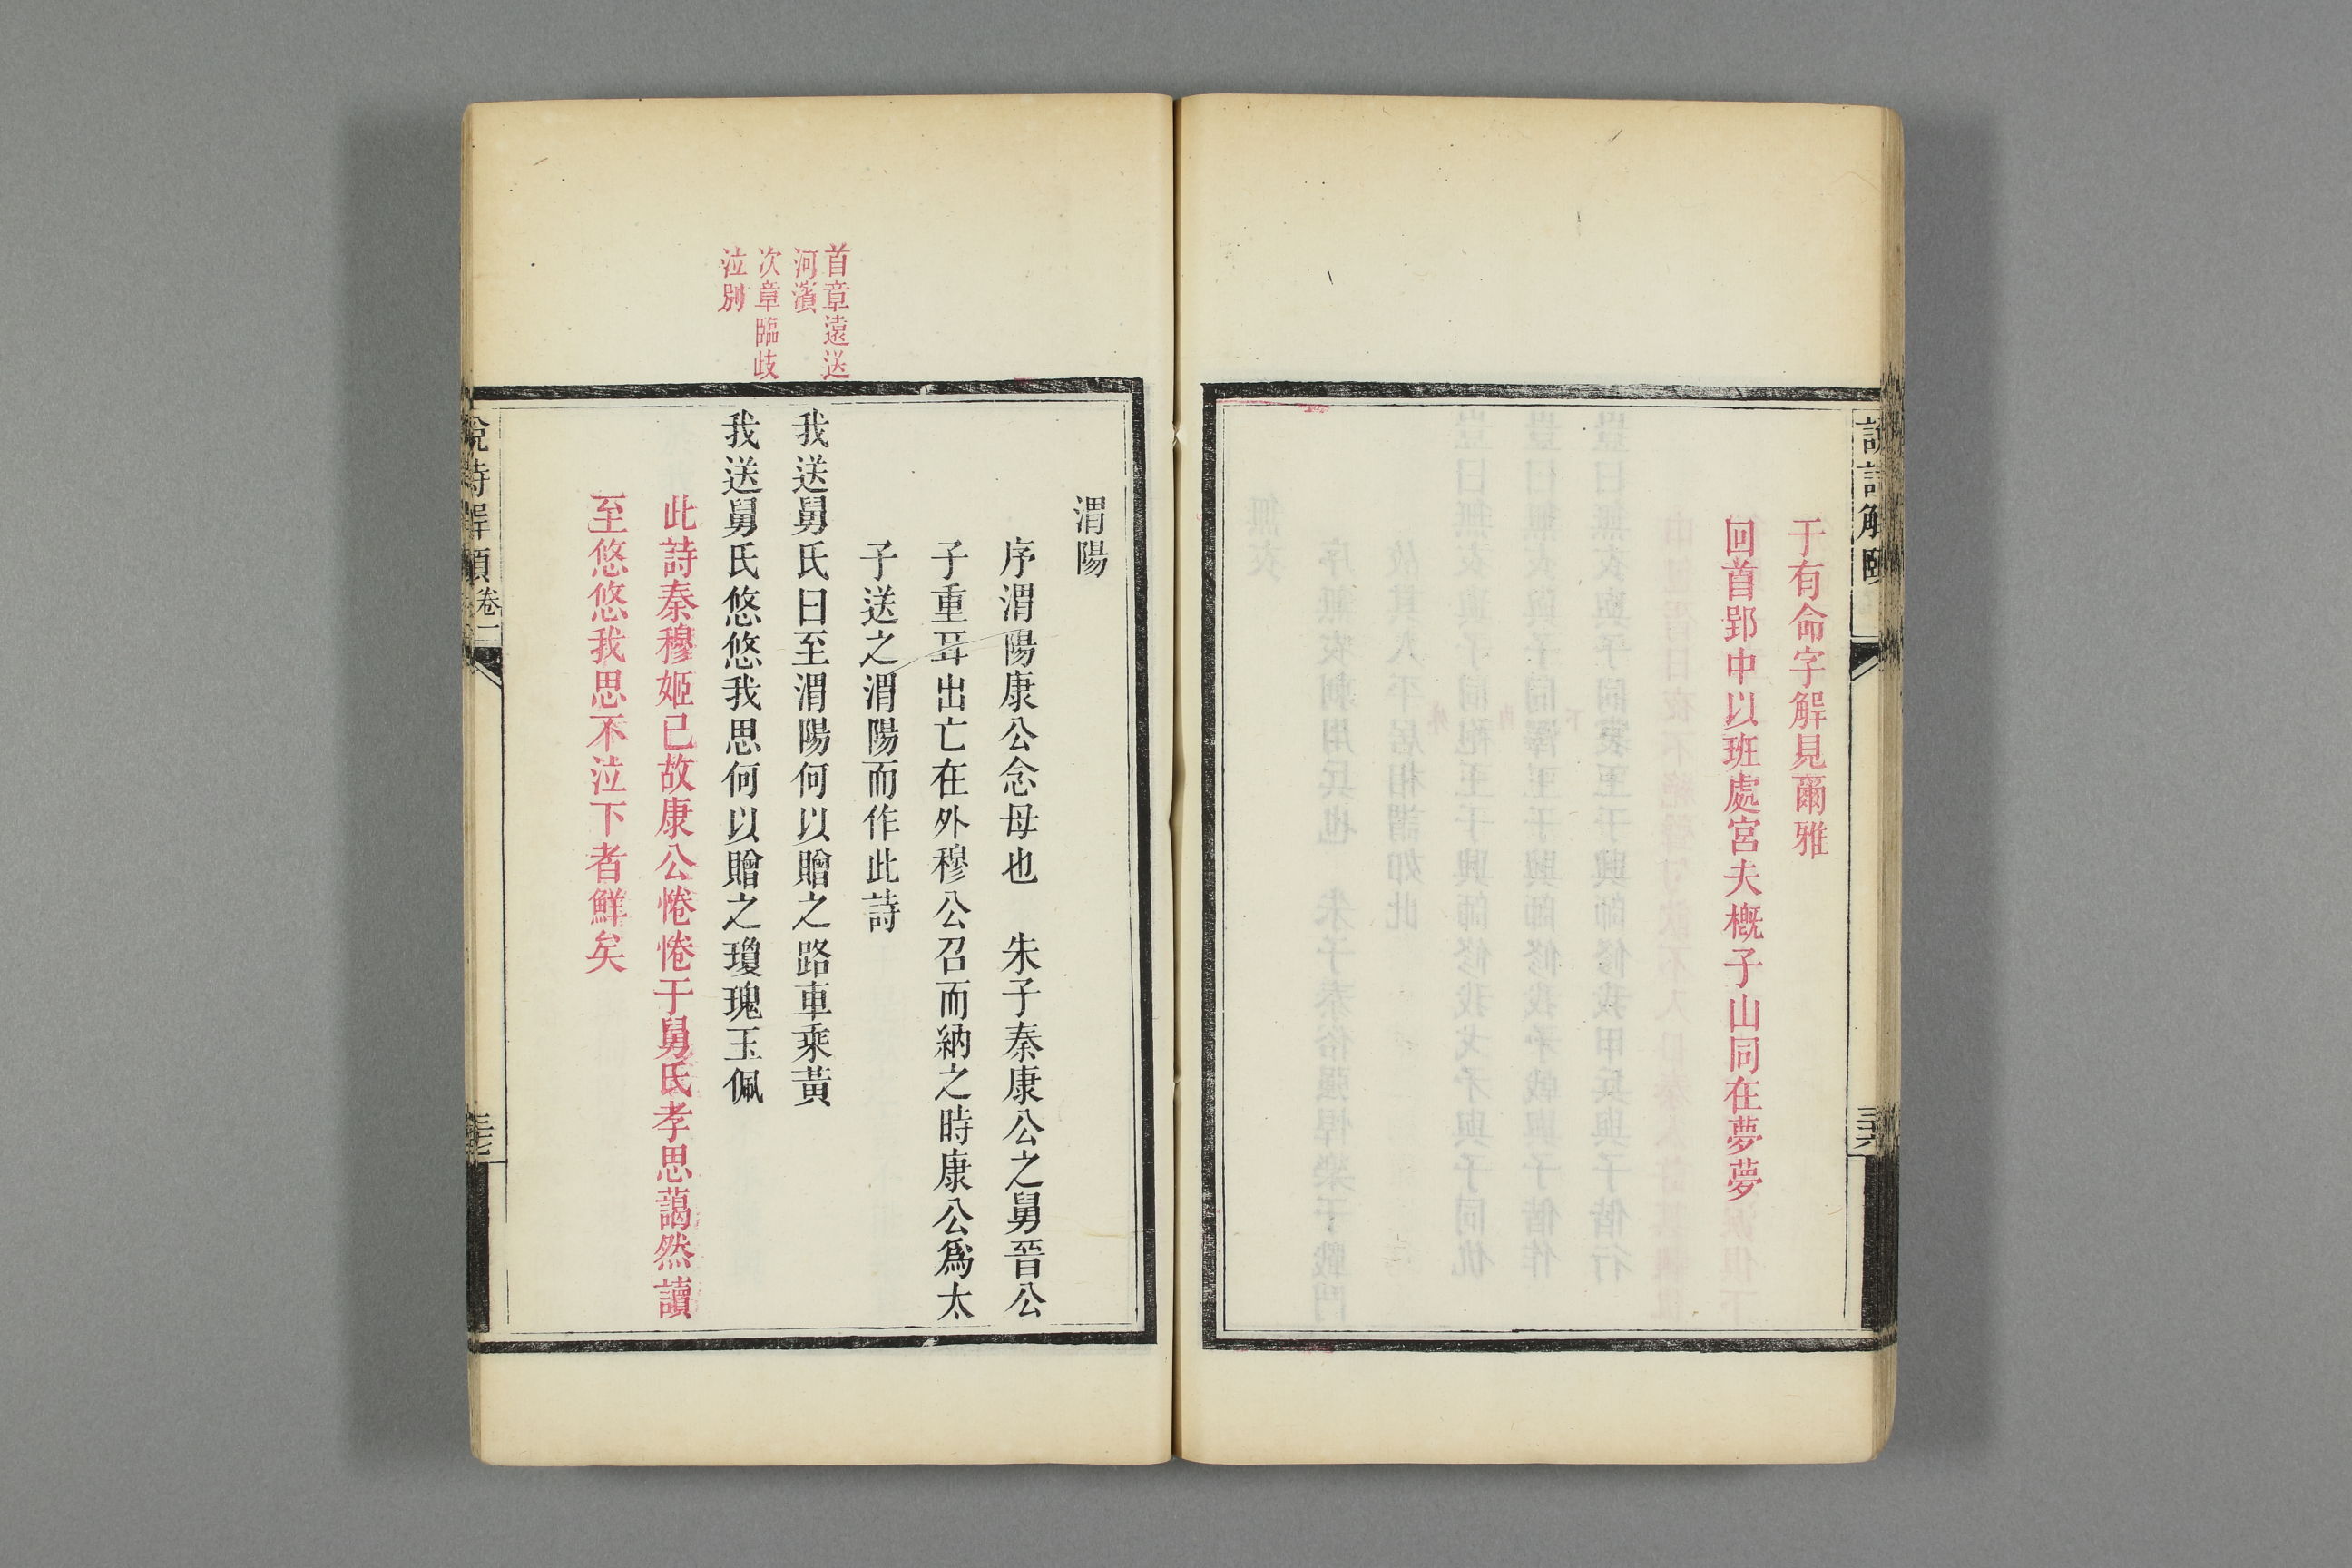 說詩解頤
三六
于有命字解見爾雅
回首郢中以班處宮夫概子山同在夢夢
渭陽
序渭陽康公念母也　朱子秦康公之舅晉公
子重耳出亡在外穆公召而納之時康公爲太
子送之渭陽而作此詩
首章遠送
河濱
次章臨歧
泣別
我送舅氏曰至渭陽何以贈之路車乘黃
我送舅氏悠悠我思何以贈之瓊瑰玉佩
此詩秦穆姬已故康公惓惓于舅氏孝思藹然讀
至悠悠我思不泣下者鮮矣
說詩解頤
卷一
三七